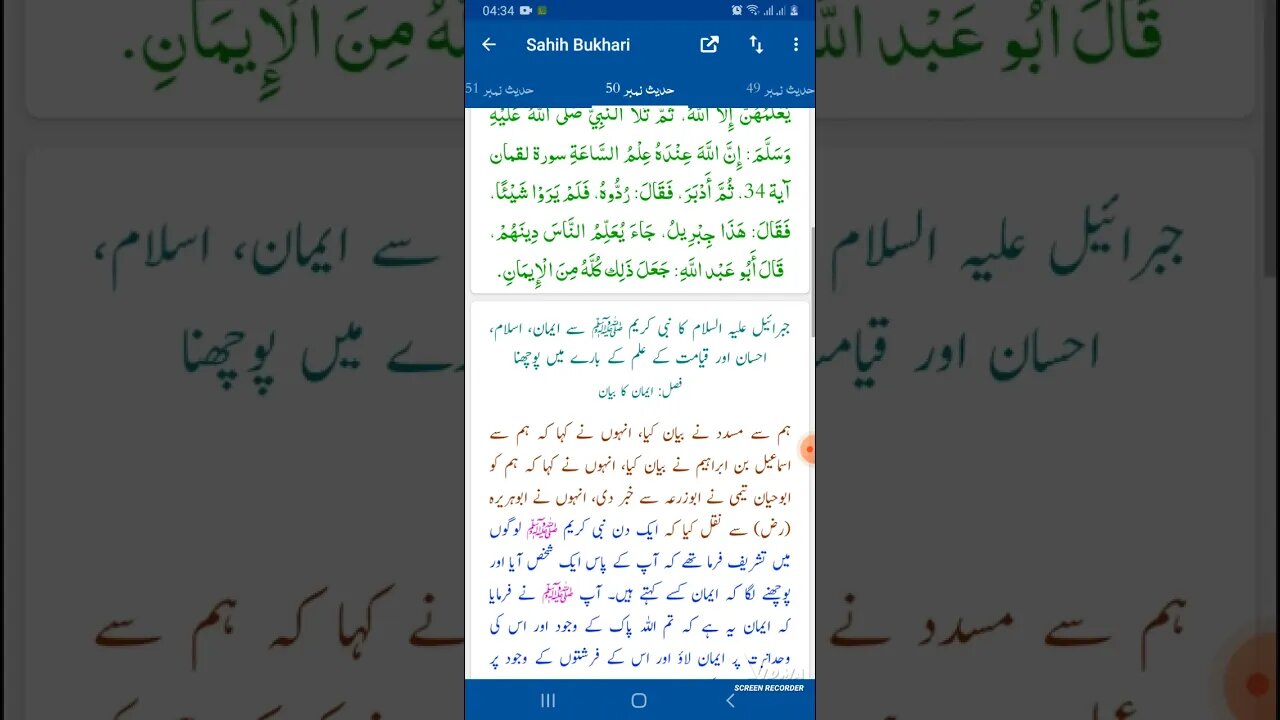 04:34
Sahih Bukhari
حدیث نمبر 49
حدیث نمبر 50
حدیث نمبر 51
يَعْلَمُهُنَّ إِلَّا اللَّهُ، ثُمَّ تَلَا النَّبِيُّ صَلَّى اللَّهُ عَلَيْهِ
وَسَلَّمَ: إِنَّ اللَّهَ عِنْدَهُ عِلْمُ السَّاعَةِ سورة لقمان
آية 34، ثُمَّ أَدْبَرَ، فَقَالَ: رُدُّوهُ، فَلَمْ يَرَوْا شَيْئًا،
فَقَالَ: هَذَا جِبْرِيلُ، جَاءَ يُعَلِّمُ النَّاسَ دِينَهُمْ،
قَالَ أَبُو عَبْد اللَّهِ: جَعَلَ ذَلِك كُلَّهُ مِنَ الْإِيمَانِ.
جبرائیل علیہ السلام کا نبی کریم ﷺ سے ایمان، اسلام،
احسان اور قیامت کے علم کے بارے میں پوچھنا
فصل: ایمان کا بیان
ہم سے مسدد نے بیان کیا، انہوں نے کہا کہ ہم سے
اسماعیل بن ابراہیم نے بیان کیا، انہوں نے کہا کہ ہم کو
ابوحیان تیمی نے ابوزرعہ سے خبر دی، انہوں نے ابوہریرہ
(رض) سے نقل کیا کہ ایک دن نبی کریم ﷺ لوگوں
میں تشریف فرما تھے کہ آپ کے پاس ایک شخص آیا اور
پوچھنے لگا کہ ایمان کسے کہتے ہیں۔ آپ ﷺ نے فرمایا
کہ ایمان یہ ہے کہ تم اللہ پاک کے وجود اور اس کی
وحدانیت پر ایمان لاؤ اور اس کے فرشتوں کے وجود پر
SCREEN RECORDER